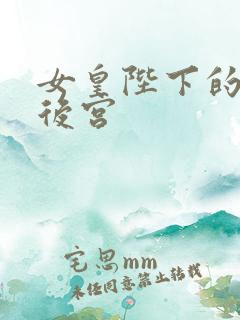 女皇陛下的
后宫
宅思mm
未经同意禁止转载